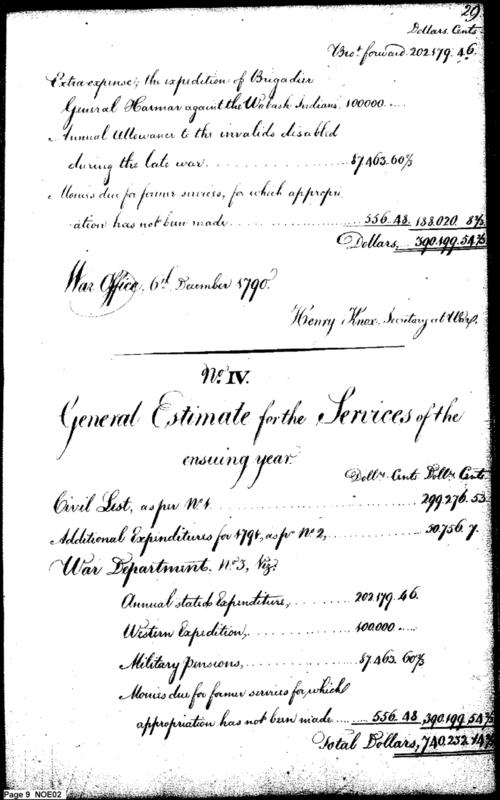 29
Dollars. Cents.
Bro.t forward. 202.179. 46.
Extra expense; the expedition of Brigadier
General Harmar against the Wabash Indians. 100000. ....
Annual Allowance to the invalids disabled
during the late war. .......... 87463.60⅔
Monies due for former services, for which appropri
ation has not been made ........ 556.48. 188.020. 8⅔
Dollars, 390.199.54⅔
War Office, 6th December 1790.
Henry Knox, Secretary at War.
No. IV.
General Estimate for the Services of the
ensuing year.
Dollrs. Cents Dollrs. Cents
Civil List, as per No. 1. .......... 299.276. 53.
Additional Expenditures for 1791, as pr No. 2, .......... 50.756. 7.
War Department. No. 3, Viz.
Annual stated Expenditure, ........ 202.179. 46.
Western Expedition, .......... 100.000 ....
Military pensions, .......... 87.463. 60⅔
Monies due for former services for which
appropriation has not been made .... 556.48. 390.199. 54⅔
Total Dollars, 740.232.14⅔
Page 9 NOE02